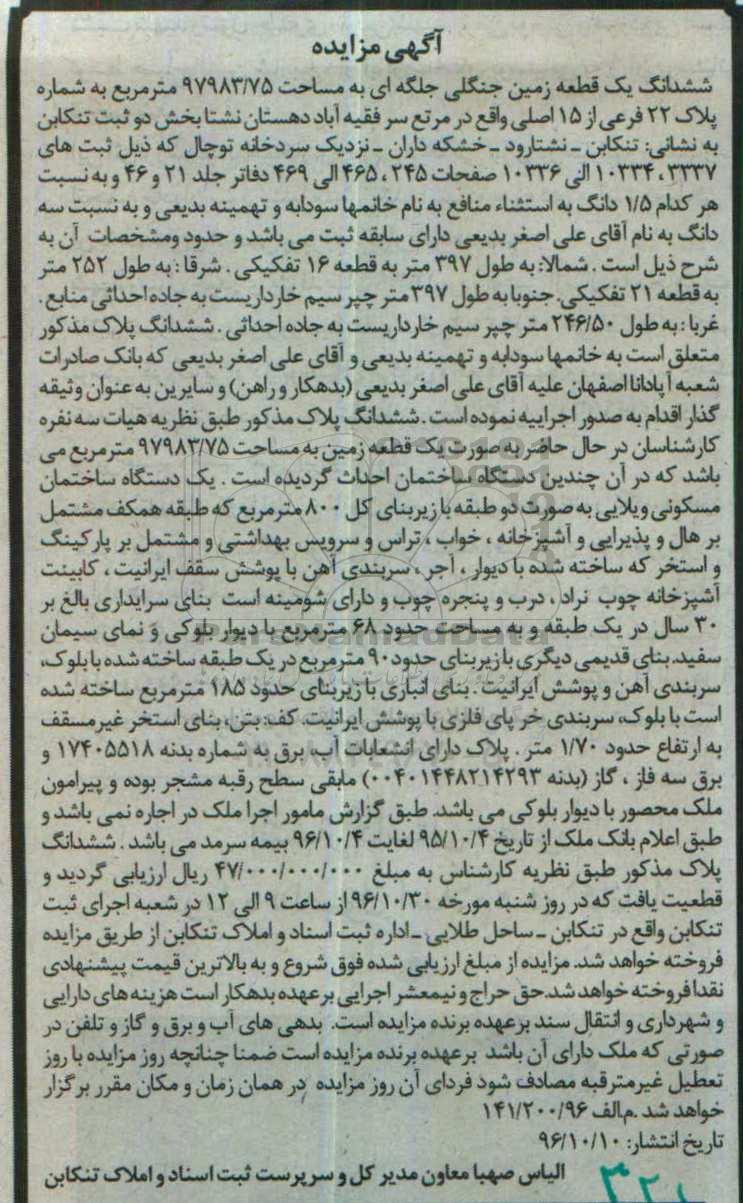 آگهی مزایده
ششدانگ یک قطعه زمین جنگلی جلگه ای به مساحت ۹۷۹۸۳/۷۵ مترمربع به شماره
پلاک ۲۲ فرعی از ۱۵ اصلی واقع در مرتع سر فقیه آباد دهستان نشتا بخش دو ثبت تنکابن
به نشانی: تنکابن ـ نشتارود ـ خشکه داران ـ نزدیک سردخانه توچال که ذیل ثبت های
۳۳۳۷، ۱۰۳۳۴ الی ۱۰۳۳۶ صفحات ۲۴۵، ۴۶۵ الی ۴۶۹ دفاتر جلد ۲۱ و ۴۶ و به نسبت
هر کدام ۱/۵ دانگ به استثناء منافع به نام خانمها سودابه و تهمینه بدیعی و به نسبت سه
دانگ به نام آقای علی اصغر بدیعی دارای سابقه ثبت می باشد و حدود ومشخصات آن به
شرح ذیل است . شمالا: به طول ۳۹۷ متر به قطعه ۱۶ تفکیکی . شرقا : به طول ۲۵۲ متر
به قطعه ۲۱ تفکیکی. جنوبا به طول ۳۹۷ متر چپر سیم خارداریست به جاده احداثی منابع .
غربا : به طول ۲۴۶/۵۰ متر چپر سیم خارداریست به جاده احداثی . ششدانگ پلاک مذکور
متعلق است به خانمها سودابه و تهمینه بدیعی و آقای علی اصغر بدیعی که بانک صادرات
شعبه آپادانا اصفهان علیه آقای علی اصغر بدیعی (بدهکار و راهن) و سایرین به عنوان وثیقه
گذار اقدام به صدور اجراییه نموده است . ششدانگ پلاک مذکور طبق نظریه هیات سه نفره
کارشناسان در حال حاضر به صورت یک قطعه زمین به مساحت ۹۷۹۸۳/۷۵ مترمربع می
باشد که در آن چندین دستگاه ساختمان احداث گردیده است . یک دستگاه ساختمان
مسکونی ویلایی به صورت دو طبقه با زیربنای کل ۸۰۰ مترمربع که طبقه همکف مشتمل
بر هال و پذیرایی و آشپزخانه ، خواب ، تراس و سرویس بهداشتی و مشتمل بر پارکینگ
و استخر که ساخته شده با دیوار ، آجر ، سربندی آهن با پوشش سقف ایرانیت ، کابینت
آشپزخانه چوب نراد ، درب و پنجره چوب و دارای شومینه است بنای سرایداری بالغ بر
۳۰ سال در یک طبقه و به مساحت حدود ۶۸ مترمربع با دیوار بلوکی و نمای سیمان
سفید. بنای قدیمی دیگری با زیربنای حدود ۹۰ مترمربع در یک طبقه ساخته شده با بلوک،
سربندی آهن و پوشش ایرانیت . بنای انباری با زیربنای حدود ۱۸۵ مترمربع ساخته شده
است با بلوک، سربندی خر پای فلزی با پوشش ایرانیت. کف: بتن، بنای استخر غیرمسقف
به ارتفاع حدود ۱/۷۰ متر . پلاک دارای انشعابات آب، برق به شماره بدنه ۱۷۴۰۵۵۱۸ و
برق سه فاز ، گاز (بدنه ۰۰۴۰۱۴۴۸۲۱۴۲۹۳) مابقی سطح رقبه مشجر بوده و پیرامون
ملک محصور با دیوار بلوکی می باشد. طبق گزارش مامور اجرا ملک در اجاره نمی باشد و
طبق اعلام بانک ملک از تاریخ ۹۵/۱۰/۴ لغایت ۹۶/۱۰/۴ بیمه سرمد می باشد . ششدانگ
پلاک مذکور طبق نظریه کارشناس به مبلغ ۴۷/۰۰۰/۰۰۰/۰۰۰ ریال ارزیابی گردید و
قطعیت یافت که در روز شنبه مورخه ۹۶/۱۰/۳۰ از ساعت ۹ الی ۱۲ در شعبه اجرای ثبت
تنکابن واقع در تنکابن ـ ساحل طلایی ـ اداره ثبت اسناد و املاک تنکابن از طریق مزایده
فروخته خواهد شد. مزایده از مبلغ ارزیابی شده فوق شروع و به بالاترین قیمت پیشنهادی
نقدا فروخته خواهد شد.حق حراج و نیمعشر اجرایی برعهده بدهکار است هزینه های دارایی
و شهرداری و انتقال سند برعهده برنده مزایده است. بدهی های آب و برق و گاز و تلفن در
صورتی که ملک دارای آن باشد برعهده برنده مزایده است ضمنا چنانچه روز مزایده با روز
تعطیل غیرمترقبه مصادف شود فردای آن روز مزایده در همان زمان و مکان مقرر برگزار
خواهد شد .م.الف ۱۴۱/۲۰۰/۹۶
تاریخ انتشار: ۹۶/۱۰/۱۰
الیاس صهبا معاون مدیر کل و سرپرست ثبت اسناد و املاک تنکابن